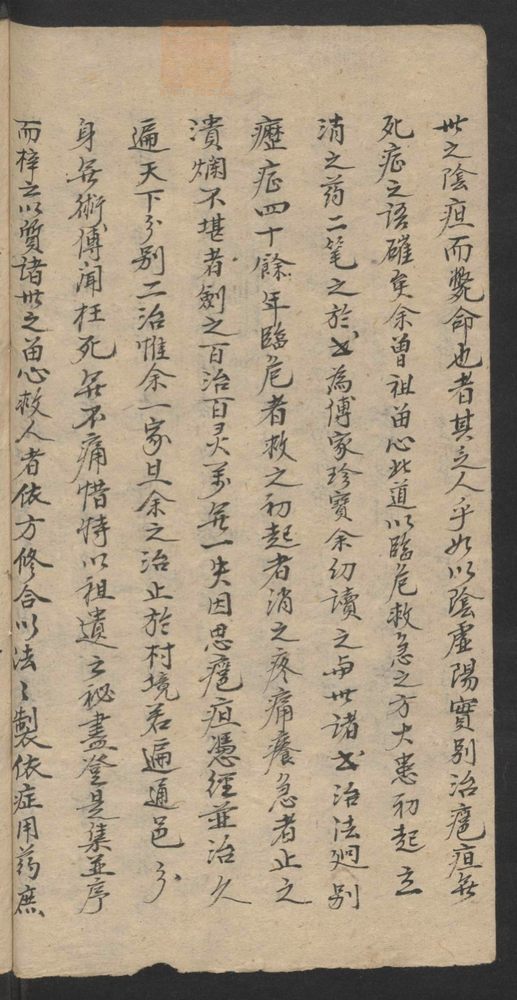 世之陰疽而斃命也者其之人乎如以陰虛陽實別治癰疽無
死症之語確矣余曾祖畄心此道以臨危救急之方大患初起立
消之药二笔之於书為傳家珍寶余幼讀之与世諸书治法迥别
癧症四十餘年臨危者救之初起者消之疼痛癢急者止之
潰爛不堪者劍之百治百灵万無一失因思癰疽憑經並治久
遍天下分别二治惟余一家且余之治止於村境若遍通邑分
身無術傳闻枉死無不痛惜特以祖遺之秘盡登是集並序
而梓之以質諸世之畄心救人者依方修合以法〻製依症用药庶